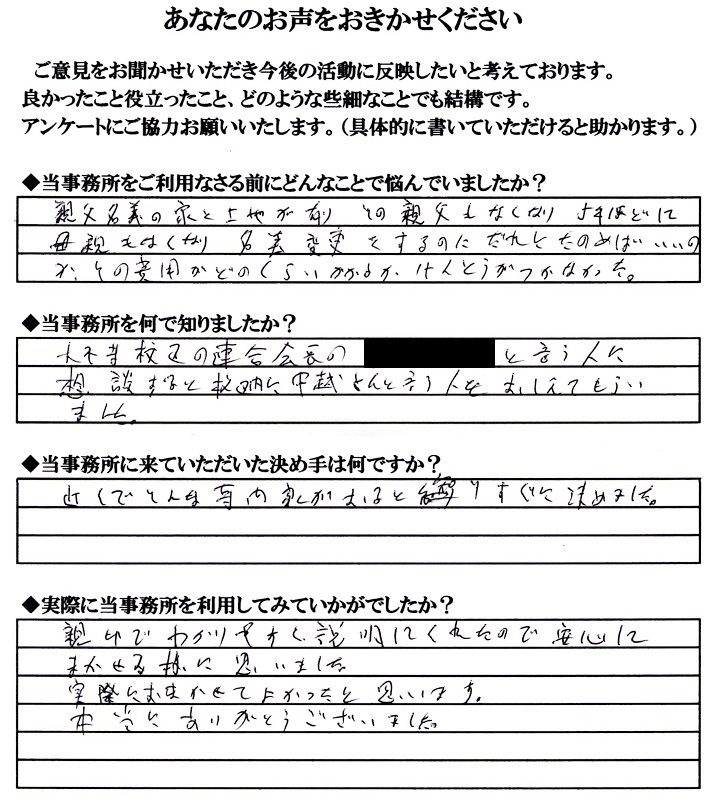 あなたのお声をおきかせください
ご意見をお聞かせいただき今後の活動に反映したいと考えております。
良かったこと役立ったこと、どのような些細なことでも結構です。
アンケートにご協力お願いいたします。（具体的に書いていただけると助かります。）
◆当事務所をご利用なさる前にどんなことで悩んでいましたか？
親父名義の家と土地が有り その親父もなくなり 5年ほどに
母親もなくなり 名義変更をするのにだれにたのめばいいの
か、その費用がどのくらいかかるか けんとうがつかなかった。
◆当事務所を何で知りましたか？
校区の連合会長の と言う人に
想談すると校区内に中越さんと言う人を おしえてもらい
ました。
◆当事務所に来ていただいた決め手は何ですか？
近くでそんな専門家がおると すぐに決めました。
◆実際に当事務所を利用してみていかがでしたか？
親切でわかりやすく説明してくれたので安心して
まかせる様に思いました
実際におまかせてよかったと思います。
本当にありがとうございました。